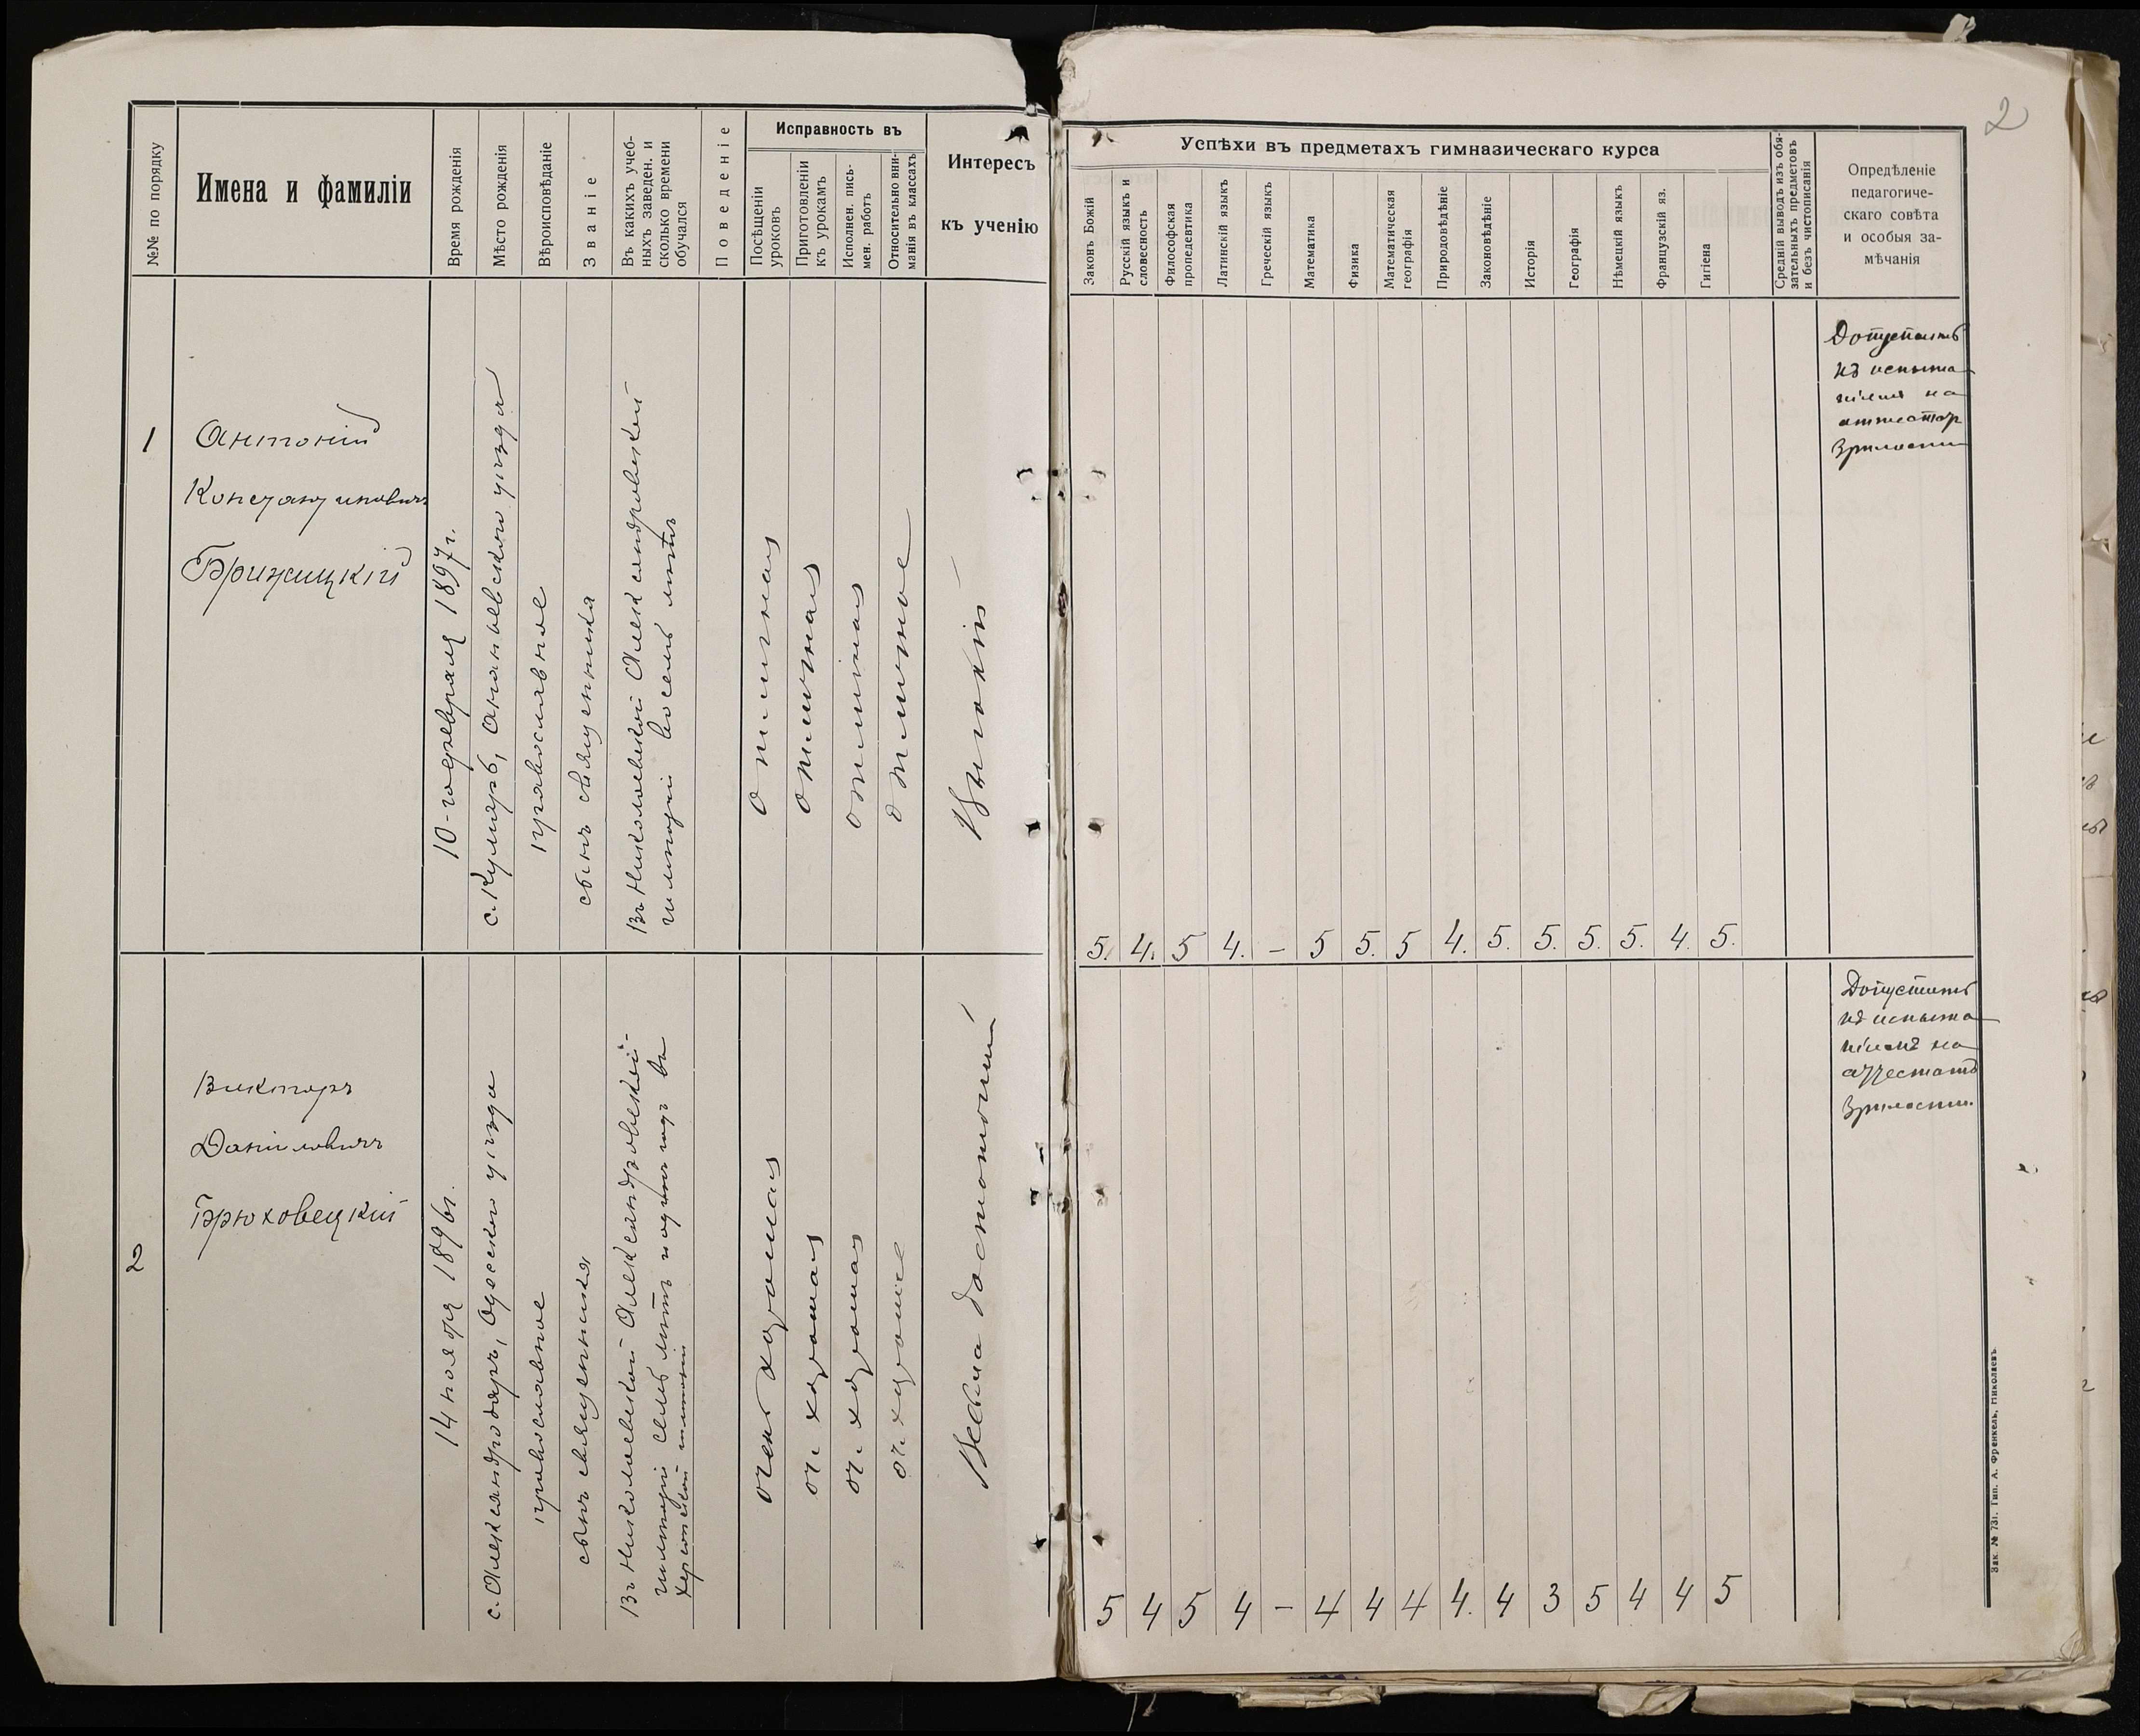 2
№№ по порядку
Имена и фамиліи
Время рожденія
Мѣсто рожденія
Вѣроисповѣданіе
Званіе
Въ какихъ учеб-
ныхъ заведен. и
сколько времени
обучался
Поведеніе
Исправность въ
Посѣщеніи
уроковъ
Приготовленіи
къ урокамъ
Исполнен. пись-
мен. работъ
Относительно вни-
манія въ классахъ
Интересъ
къ ученію
Успѣхи въ предметахъ гимназическаго курса
Законъ Божій
Русскій языкъ и
словесность
Философская
пропедевтика
Латинскій языкъ
Греческій языкъ
Математика
Физика
Математическая
географія
Природовѣдѣніе
Законовѣдѣніе
Исторія
Географія
Нѣмецкій языкъ
Французскій яз.
Гигіена
Средній выводъ изъ обя-
зательныхъ предметовъ
и безъ чистописанія
Опредѣленіе
педагогиче-
скаго совѣта
и особыя за-
мѣчанія
1
Антоній
Константиновичъ
Брижицкій
10-го февраля 1897 г.
с. Куляръ, Ананьевскаго уѣзда
православное
сынъ священника
Въ Николаевской Александровской
гимназіи восемь лѣтъ
отличная
отличная
отличная
отличное
5. 4. 5 4. – 5 5. 5 4. 5. 5. 5. 5. 4. 5.
Допустить
къ испыта
ніямъ на
аттестатъ
Зрѣлости
2
Викторъ
Даніиловичъ
Брюховецкій
14 ноября 1896 г.
с. Александродаръ, Одесскаго уѣзда
православное
сынъ священника
Въ Николаевской Александровской
гимназіи семь лѣтъ и одинъ годъ въ
Херсонской гимназіи
очень хорошая
оч. хорошая
оч. хорошая
оч. хорошее
Весьма достаточный
5 4 5 4 – 4 4 4 4. 4 3 5 4 4 5
Допустить
къ испыта
ніямъ на
аттестатъ
Зрѣлости.
Зак. № 731. Тип. А. Френкель, Николаевъ.